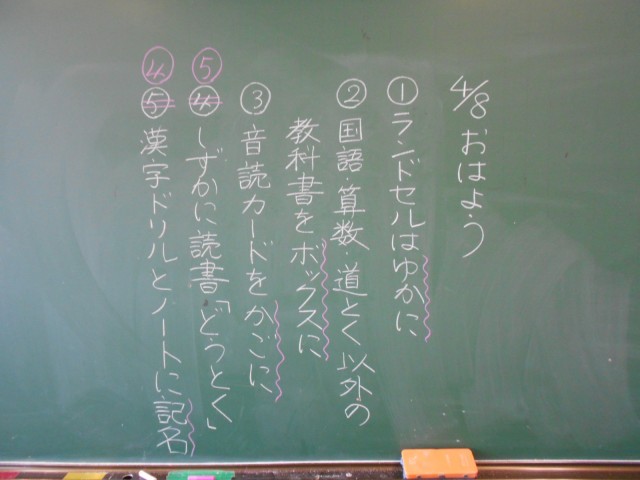 4/8 おはよう
①ランドセルはゆかに
②国語・算数・道とく以外の
教科書をボックスに
③音読カードをかごに
⑤④しずかに読書「どうとく」
④⑤漢字ドリルとノートに記名